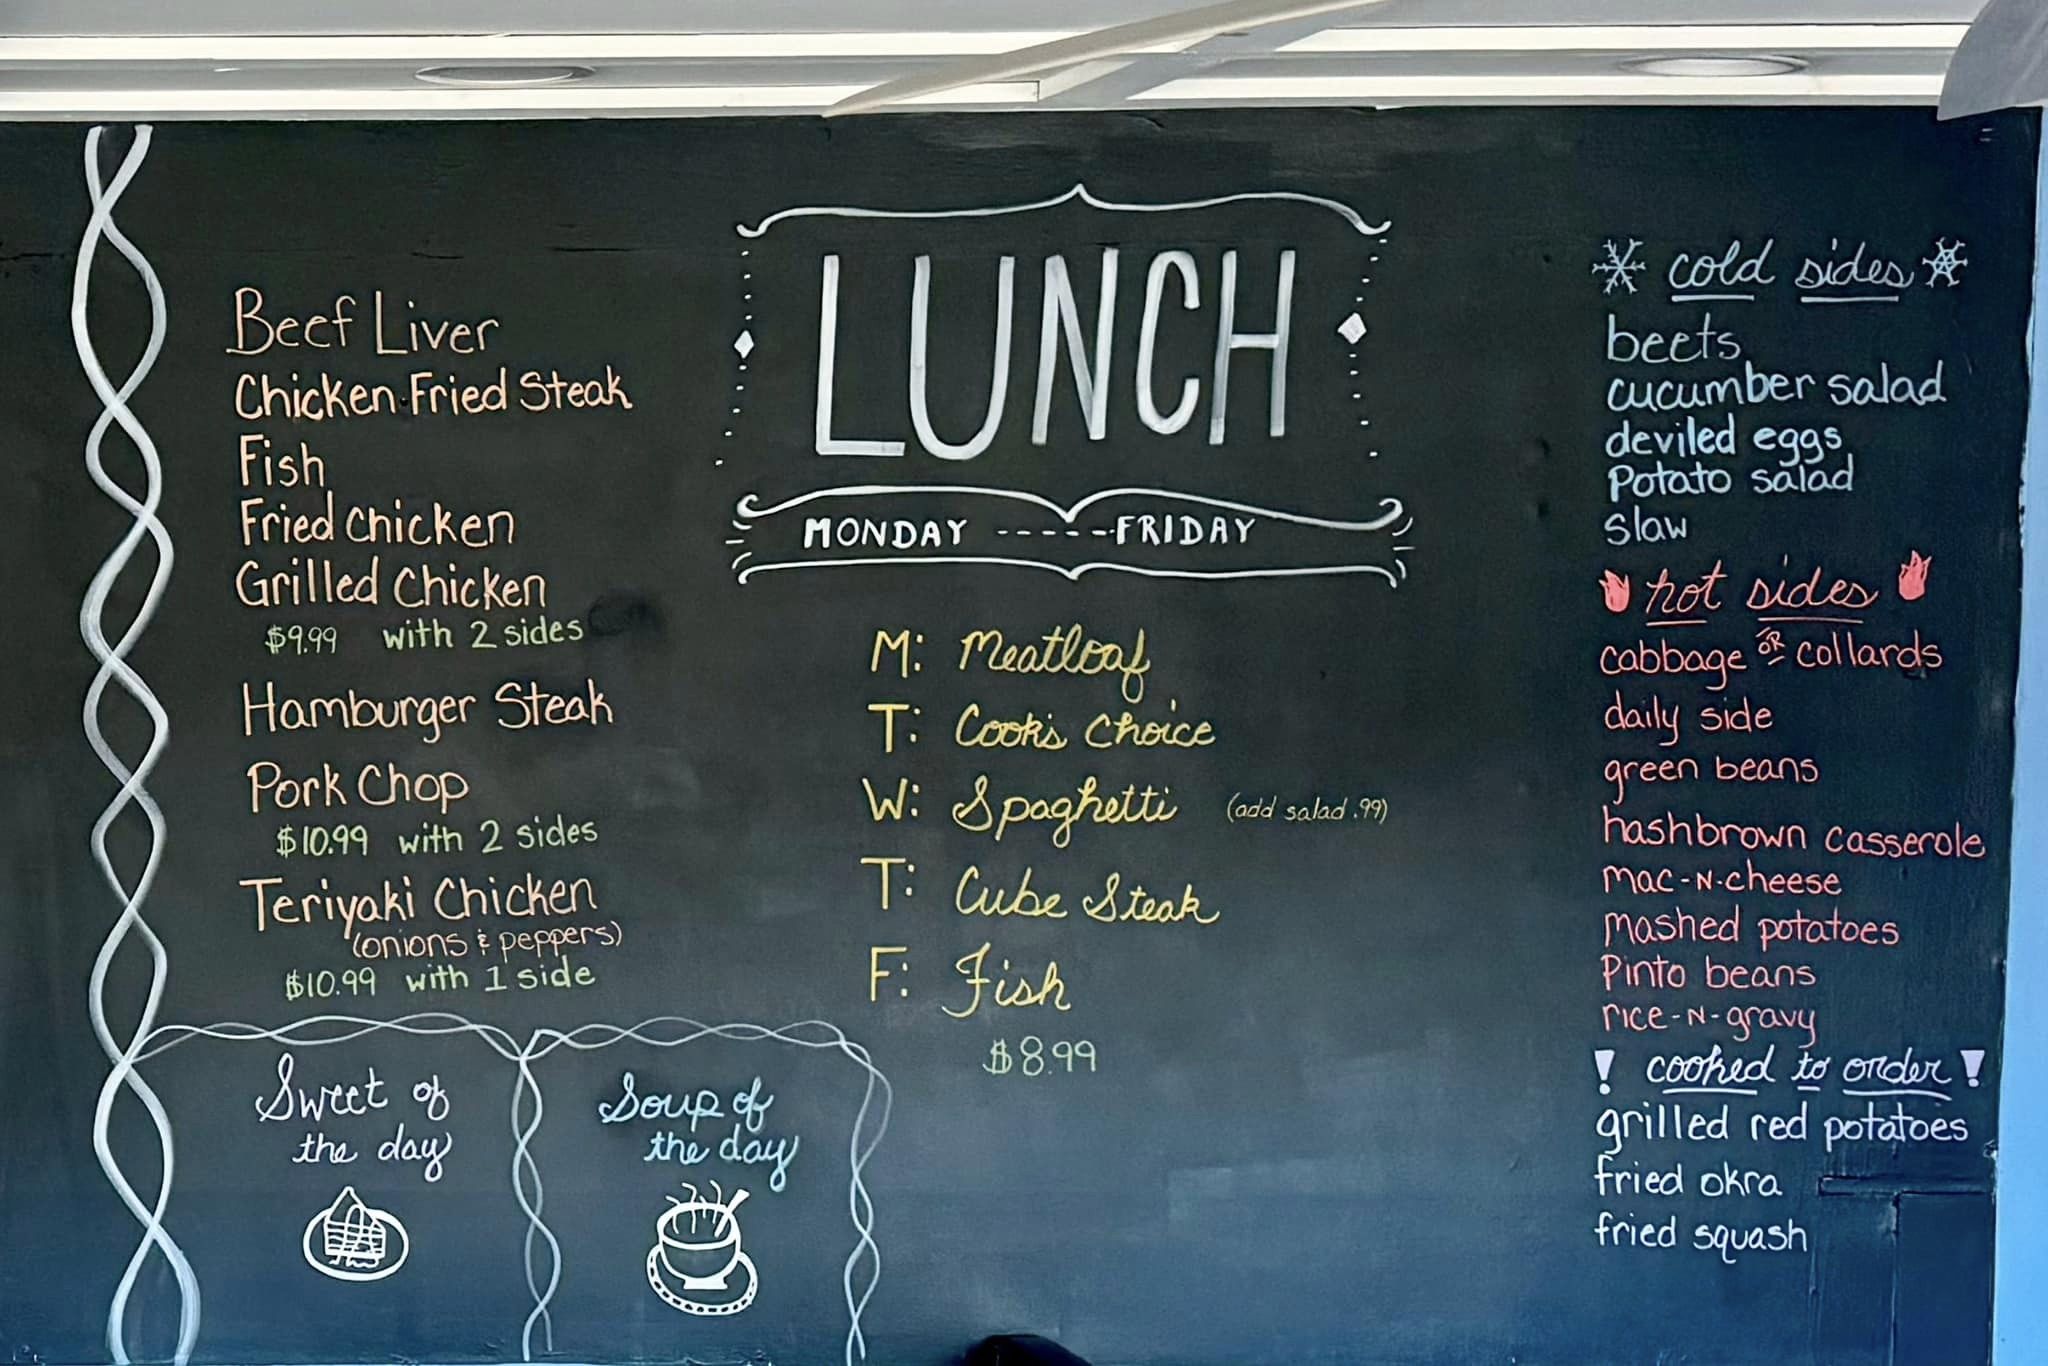 LUNCH
MONDAY -----FRIDAY
Beef Liver
Chicken Fried Steak
Fish
Fried Chicken
Grilled Chicken
$9.99 with 2 sides
Hamburger Steak
Pork Chop
$10.99 with 2 sides
Teriyaki Chicken
(onions & peppers)
$10.99 with 1 side
Sweet of
the day
Soup of
the day
M: Meatloaf
T: Cook's Choice
W: Spaghetti (add salad .99)
T: Cube Steak
F: Fish
$8.99
cold sides
beets
cucumber salad
deviled eggs
Potato salad
slaw
hot sides
cabbage OR collards
daily side
green beans
hashbrown casserole
mac-N-cheese
mashed potatoes
Pinto beans
rice-N-gravy
! cooked to order !
grilled red potatoes
fried okra
fried squash